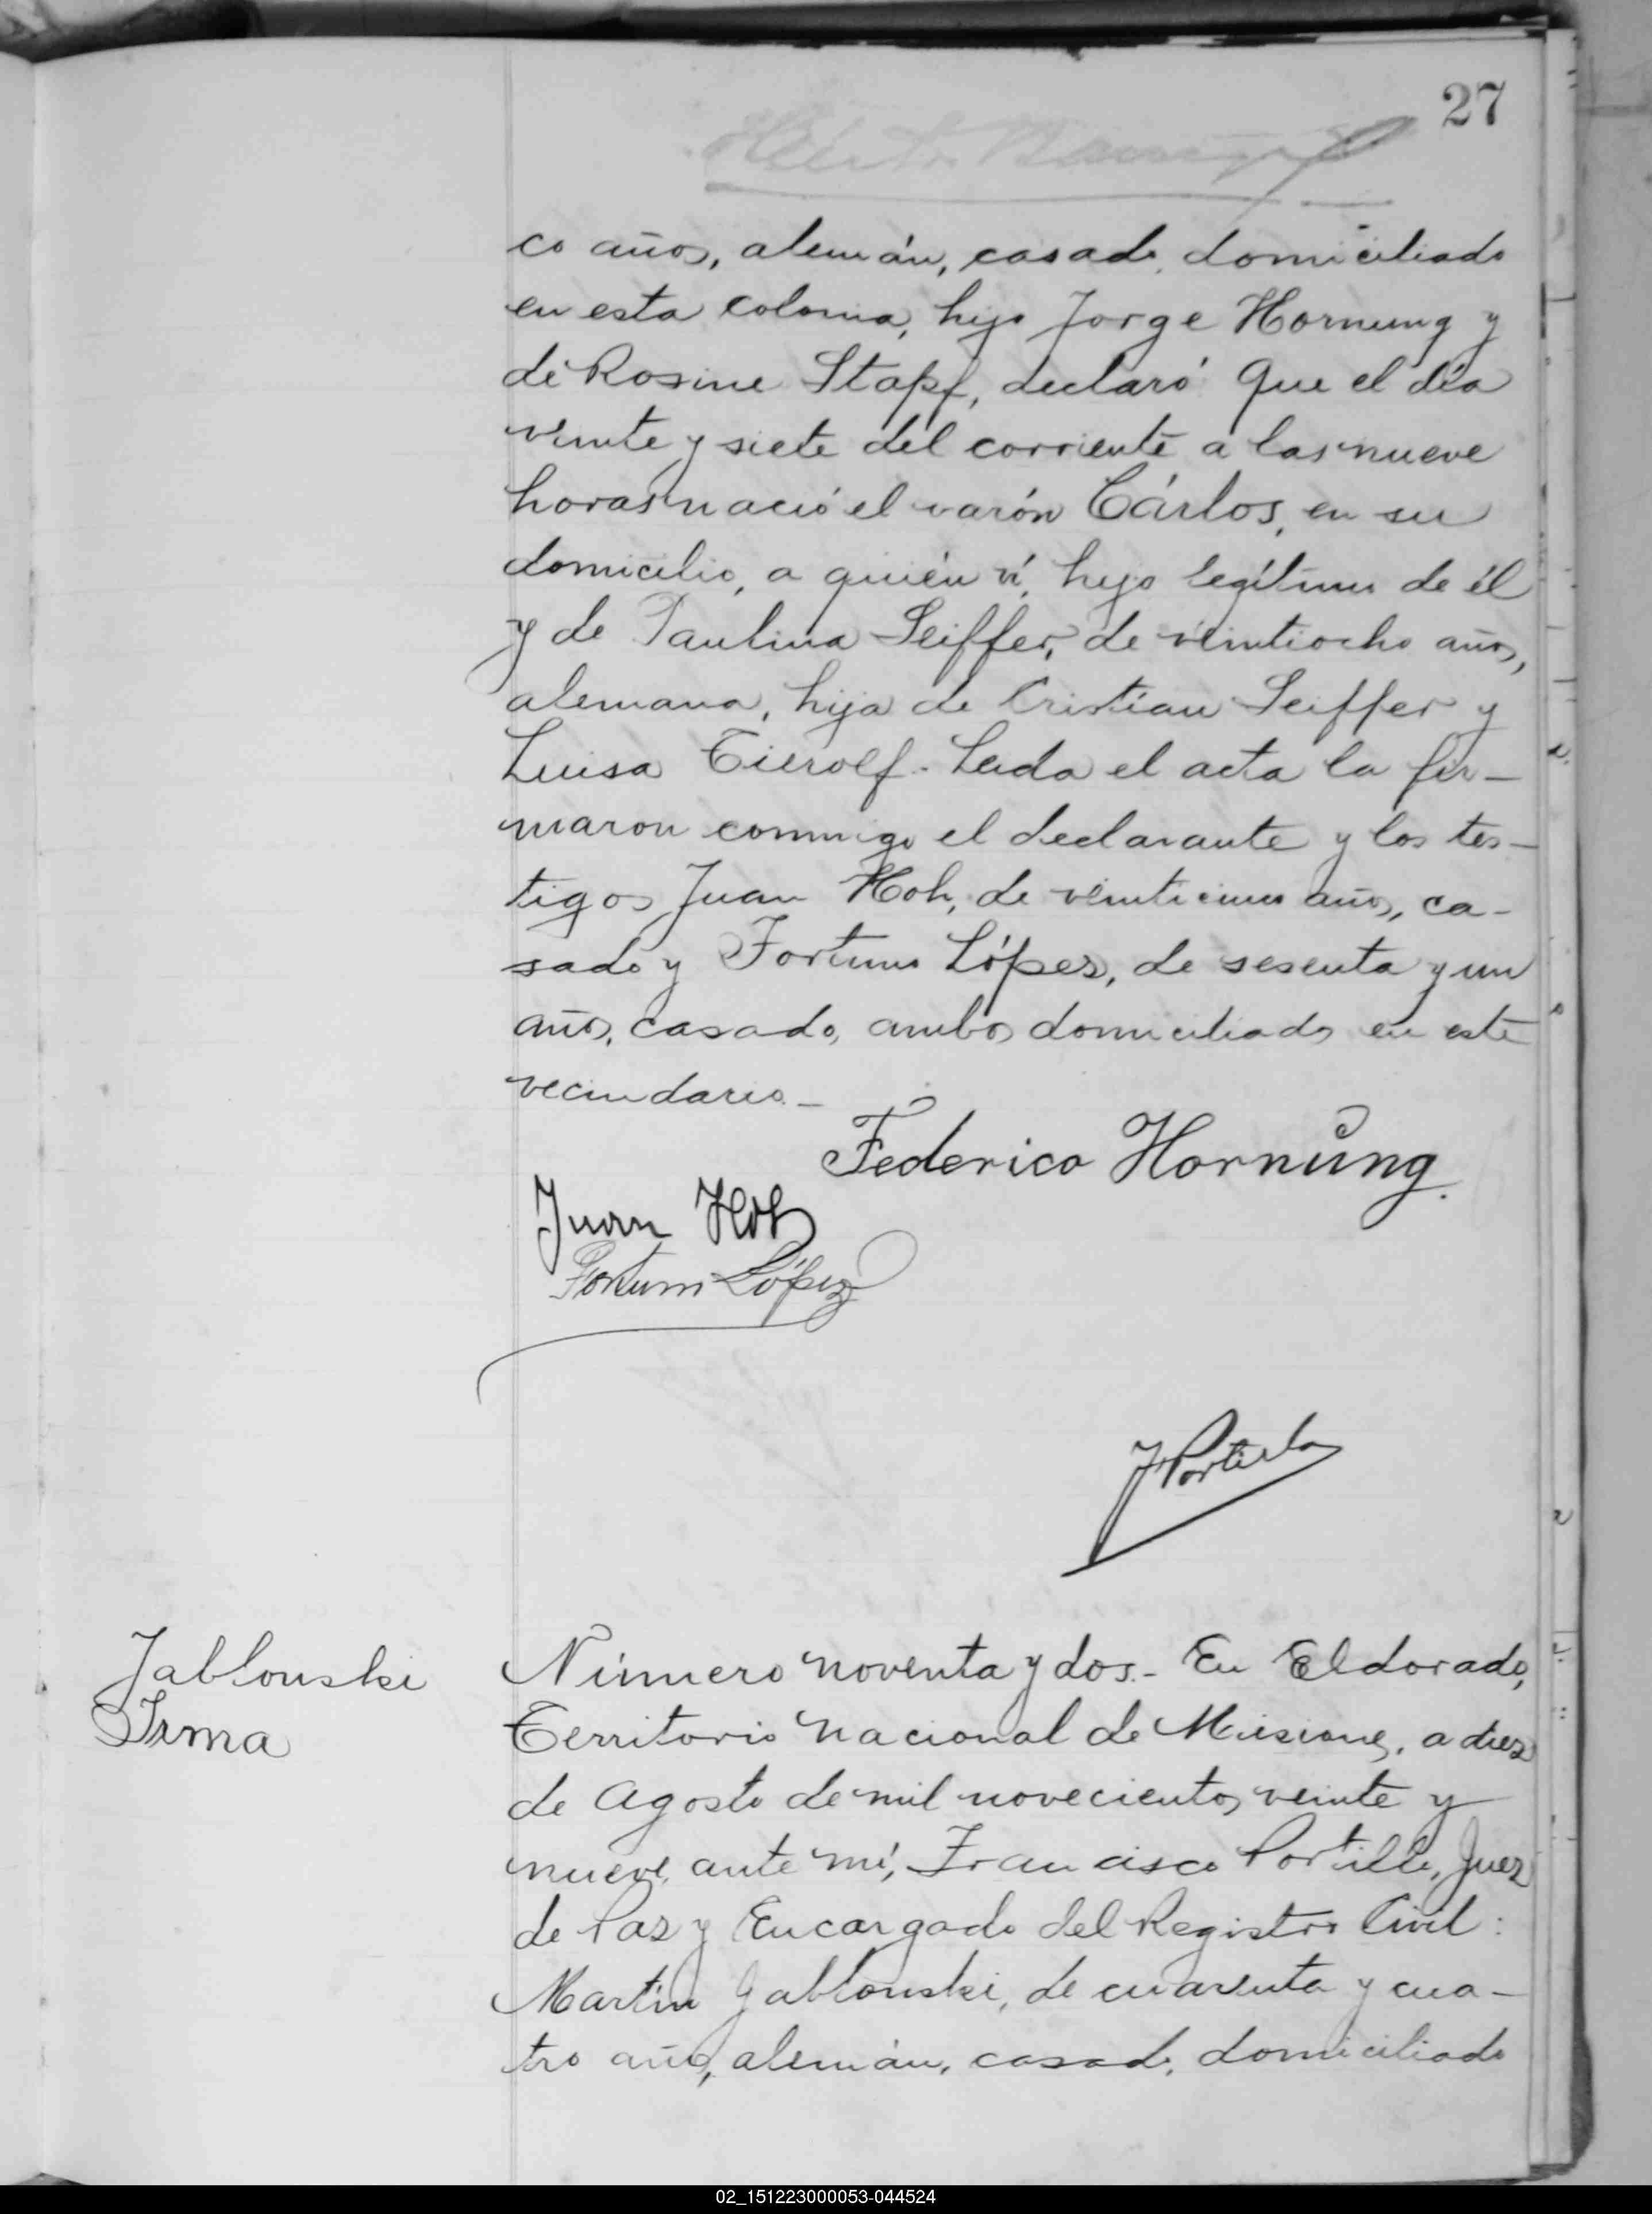 27
co años, alemán, casado, domiciliado
en esta colonia, hijo Jorge Hornung y
de Rosine Stapf, declaró: Que el día
veinte y siete del corriente a las nueve
horas nació el varón Cárlos, en su
domicilio, a quién ví, hijo legítimo de él
y de Paulina Seiffer, de veintiocho años,
alemana, hija de Cristian Seiffer y
Luisa Tierolf.- Leida el acta la fir-
maron conmigo el declarante y los tes-
tigos Juan Hoh, de veinticinco años, ca-
sado y Fortuno López, de sesenta y un
años, casado, ambos domiciliados en este
vecindario.-
Federico Hornung.
Juan Hoh
Fortuno López
FPortillo
Jablonski
Irma
Número noventa y dos.- En Eldorado,
Territorio Nacional de Misiones, a diez
de Agosto de mil novecientos veinte y
nueve, ante mí, Francisco Portillo, Juez
de Paz y Encargado del Registro Civil:
Martin Jablonski, de cuarenta y cua-
tro años, alemán, casado, domiciliado
02_151223000053-044524